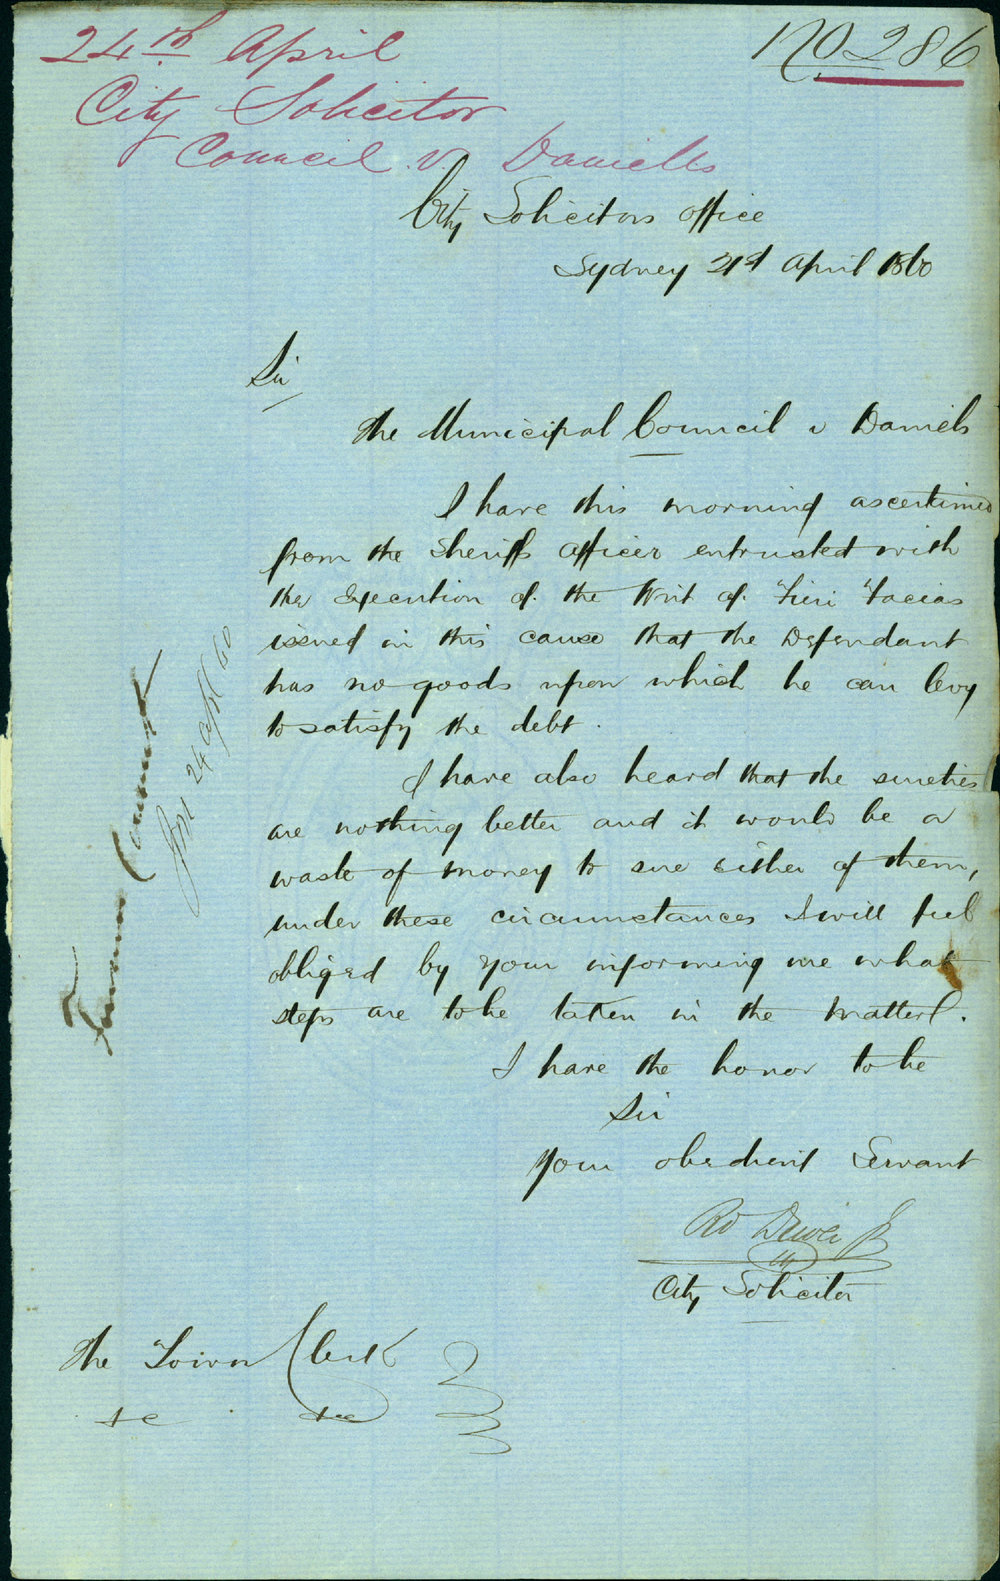 24th April
No 286
City Solicitor
Council v. Daniells
City Solicitors office
Sydney 21st April 1860
Sir
The Municipal Council v Daniels
I have this morning ascertained
from the Sheriffs Officer entrusted with
the Execution of the Writ of Fieri Facias
issued in this cause that the Defendant
has no goods upon which he can levy
to satisfy the debt.
I have also heard that the sureties
are nothing better and it would be a
waste of money to sue either of them,
under these circumstances I will feel
obliged by your informing me what
steps are to be taken in the matter.
I have the honor to be
Sir
Your obedient Servant
City Solicitor
The Town Clerk
&c &c
Finance Committee
24 Apl 60